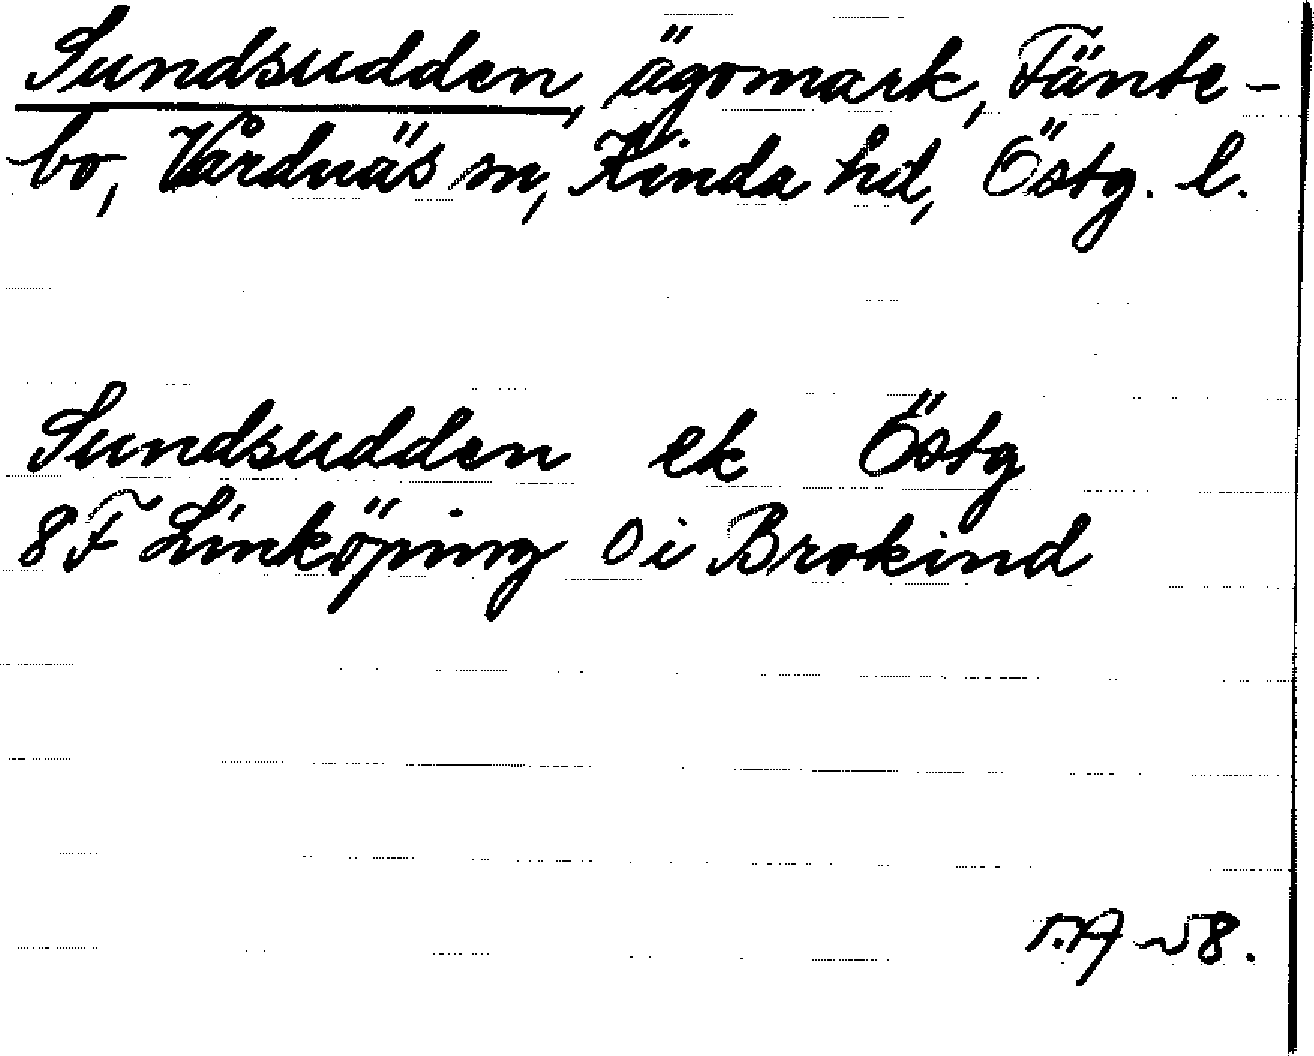 Sundsudden, ägomark, Fänte-
bo, Vårdnäs sn, Kinda hd, Östg. l.
Sundsudden ek Östg
8F Linköping 0 i Brokind
58.